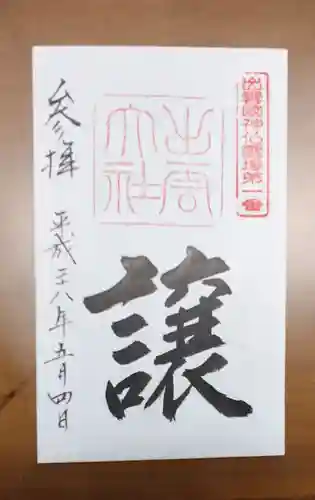 出雲國神仏霊場第一番
出雲大社
譲
参拝 平成二八年五月四日